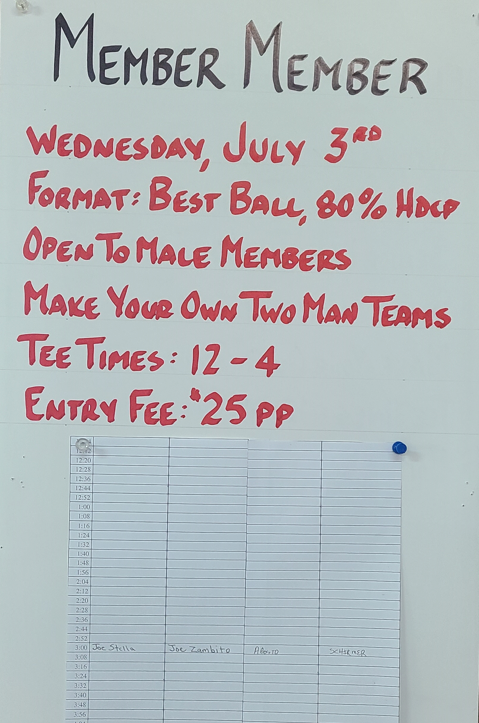 MEMBER MEMBER
WEDNESDAY, JULY 3RD
FORMAT: BEST BALL, 80% HDCP
OPEN TO MALE MEMBERS
MAKE YOUR OWN TWO MAN TEAMS
TEE TIMES: 12 - 4
ENTRY FEE: $25 PP
12:20
12:28
12:36
12:44
12:52
1:00
1:08
1:16
1:24
1:32
1:40
1:48
1:56
2:04
2:12
2:20
2:28
2:36
2:44
2:52
3:00 Joe Stella Joe Zambito
3:08
3:16
3:24
3:32
3:40
3:48
3:56